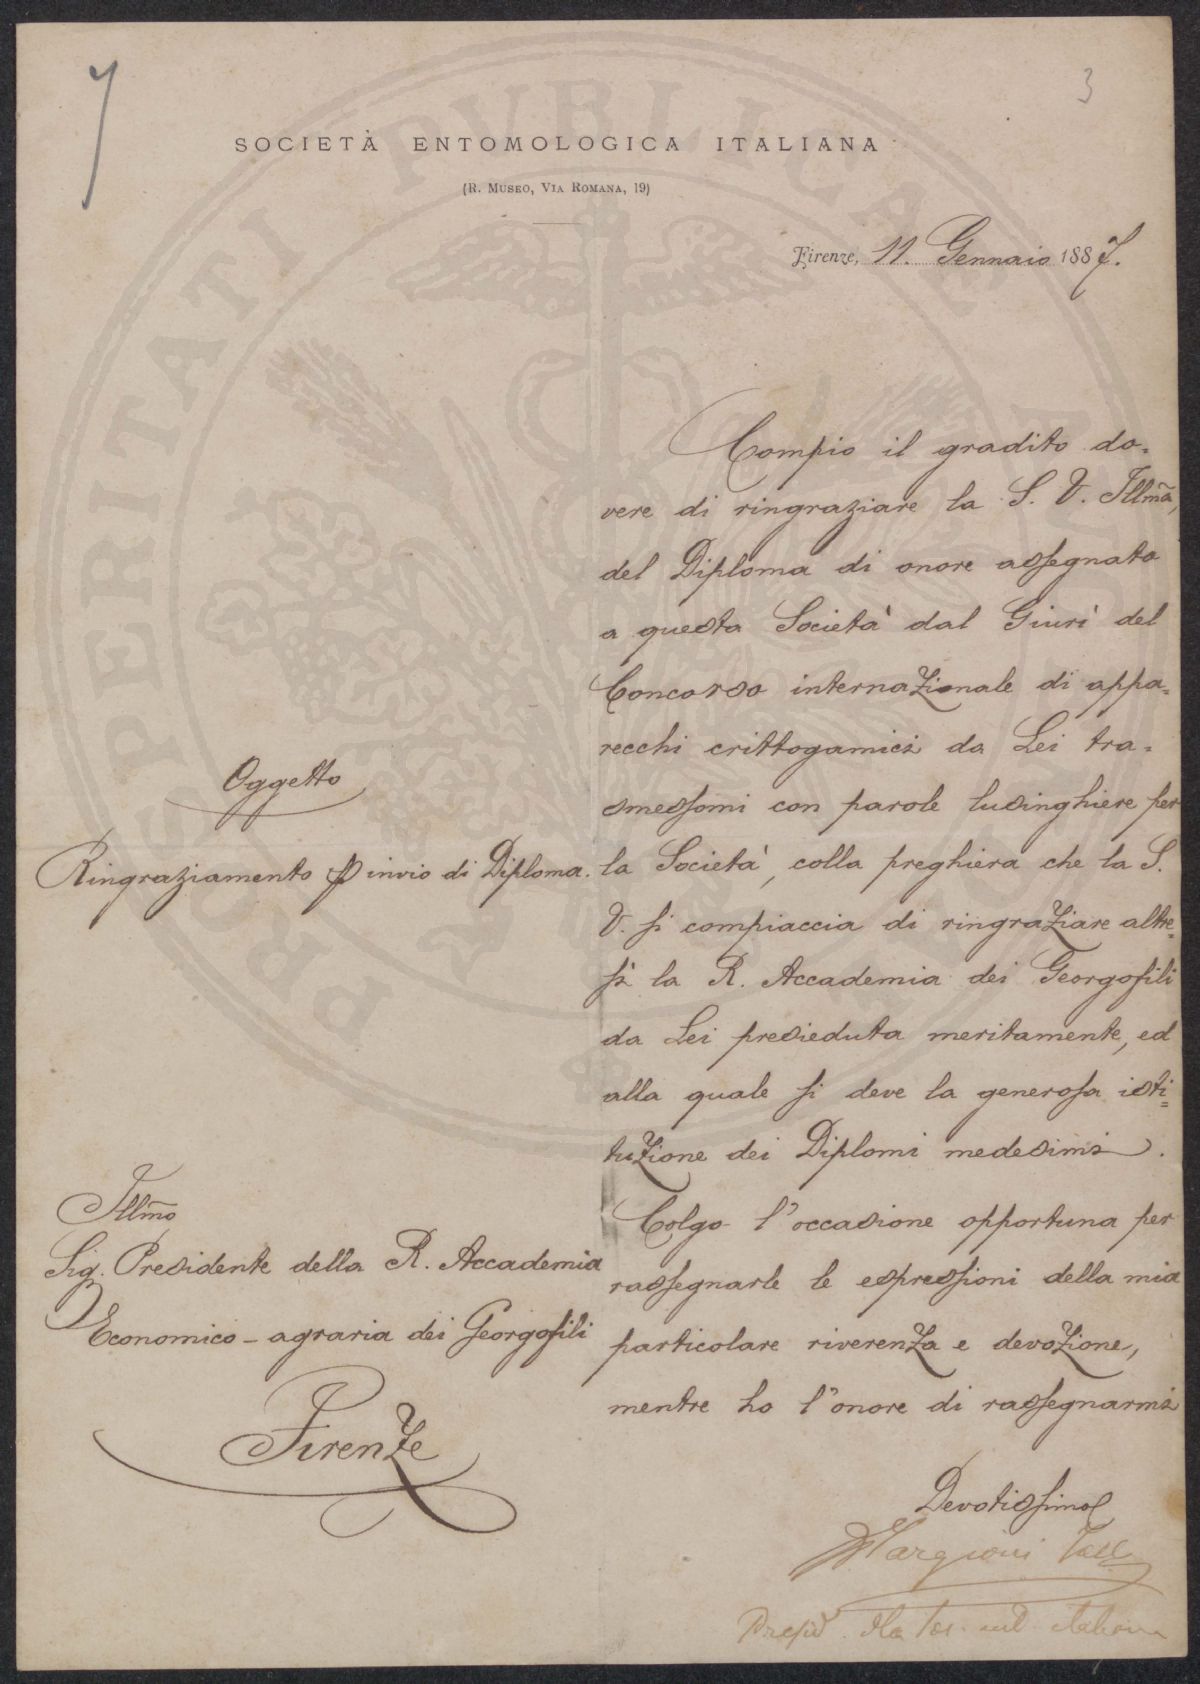 7
3
SOCIETÀ ENTOMOLOGICA ITALIANA
(R. MUSEO, VIA ROMANA, 19)
Firenze, 11. Gennaio 1887.
Compio il gradito do-
vere di ringraziare la S. V. Illma,
del Diploma di onore assegnato
a questa Società dal Giurì del
Concorso internazionale di appa=
recchi crittogamici da Lei tra-
smessomi con parole lusinghiere per
la Società, colla preghiera che la S.
V. si compiaccia di ringraziare altre=
sì la R. Accademia dei Georgofili
da Lei presieduta meritamente, ed
alla quale si deve la generosa isti=
tuzione dei Diplomi medesimi.
Colgo l'occasione opportuna per
rassegnarle le espressioni della mia
particolare riverenza e devozione,
mentre ho l'onore di rassegnarmi
Devotissimo
Targioni Tozz
Presid. Ila Soc. ent. italiana
Oggetto
Ringraziamento p invio di Diploma.
Illmo
Sig. Presidente della R. Accademia
Economico-agraria dei Georgofili
Firenze
PROSPERITATI PVBLICAE